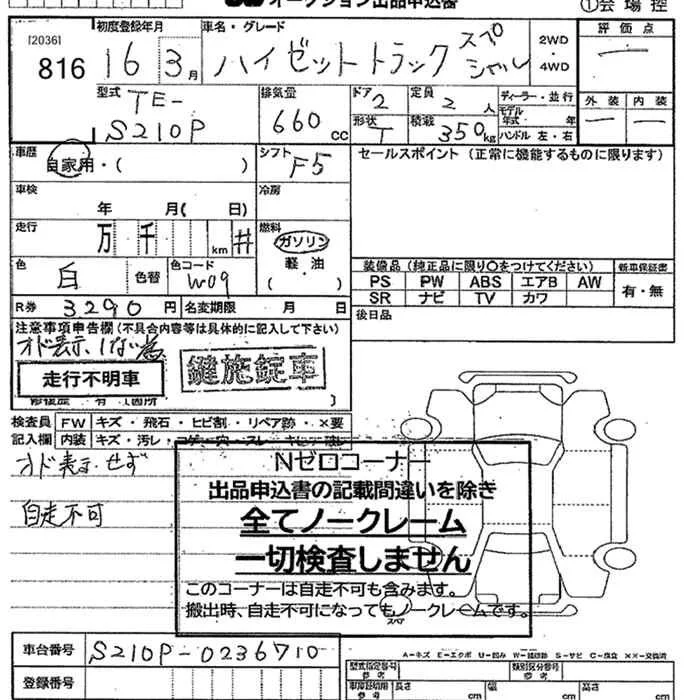 オークション出品申込書
①会場控
[2036]
816
初度登録年月
16 3月
車名・グレード
ハイゼットトラック スペシャル
2WD・4WD
評価点
外装 内装
型式
TE-
S210P
排気量
660cc
ドア 2
定員 2人
形状 T
積載 350kg
ディーラー・並行
モデル年式 年
ハンドル 左・右
車歴
自家用・( )
シフト F5
セールスポイント (正常に機能するものに限ります)
車検
年 月( 日)
冷房
走行
万 千 km #
燃料
ガソリン
軽・油
( )
色 白 色替
色コード W09
装備品 (純正品に限り○をつけてください)
新車保証書
PS PW ABS エアB AW
SR ナビ TV カワ
有・無
R券 3290円
名変期限 月 日
後日品
注意事項申告欄(不具合内容等は具体的に記入して下さい)
オド表示しない為
走行不明車
鍵施錠車
修復歴 有(箇所
検査員記入欄
FW キズ・飛石・ヒビ割・リペア跡・×要
内装 キズ・汚レ・コゲ・穴・スレ
オド表示せず
自走不可
Nゼロコーナー
出品申込書の記載間違いを除き
全てノークレーム
一切検査しません
このコーナーは自走不可も含みます。
搬出時、自走不可になってもノークレームです。
スペア
A-キズ E-エクボ U-凹み W-補修跡 S-サビ C-腐食 ××-交換済
車台番号 S210P-0236710
登録番号
型式指定番号 参考
類別区分番号 参考
車庫証明用 参考
長さ cm
幅 cm
高さ cm